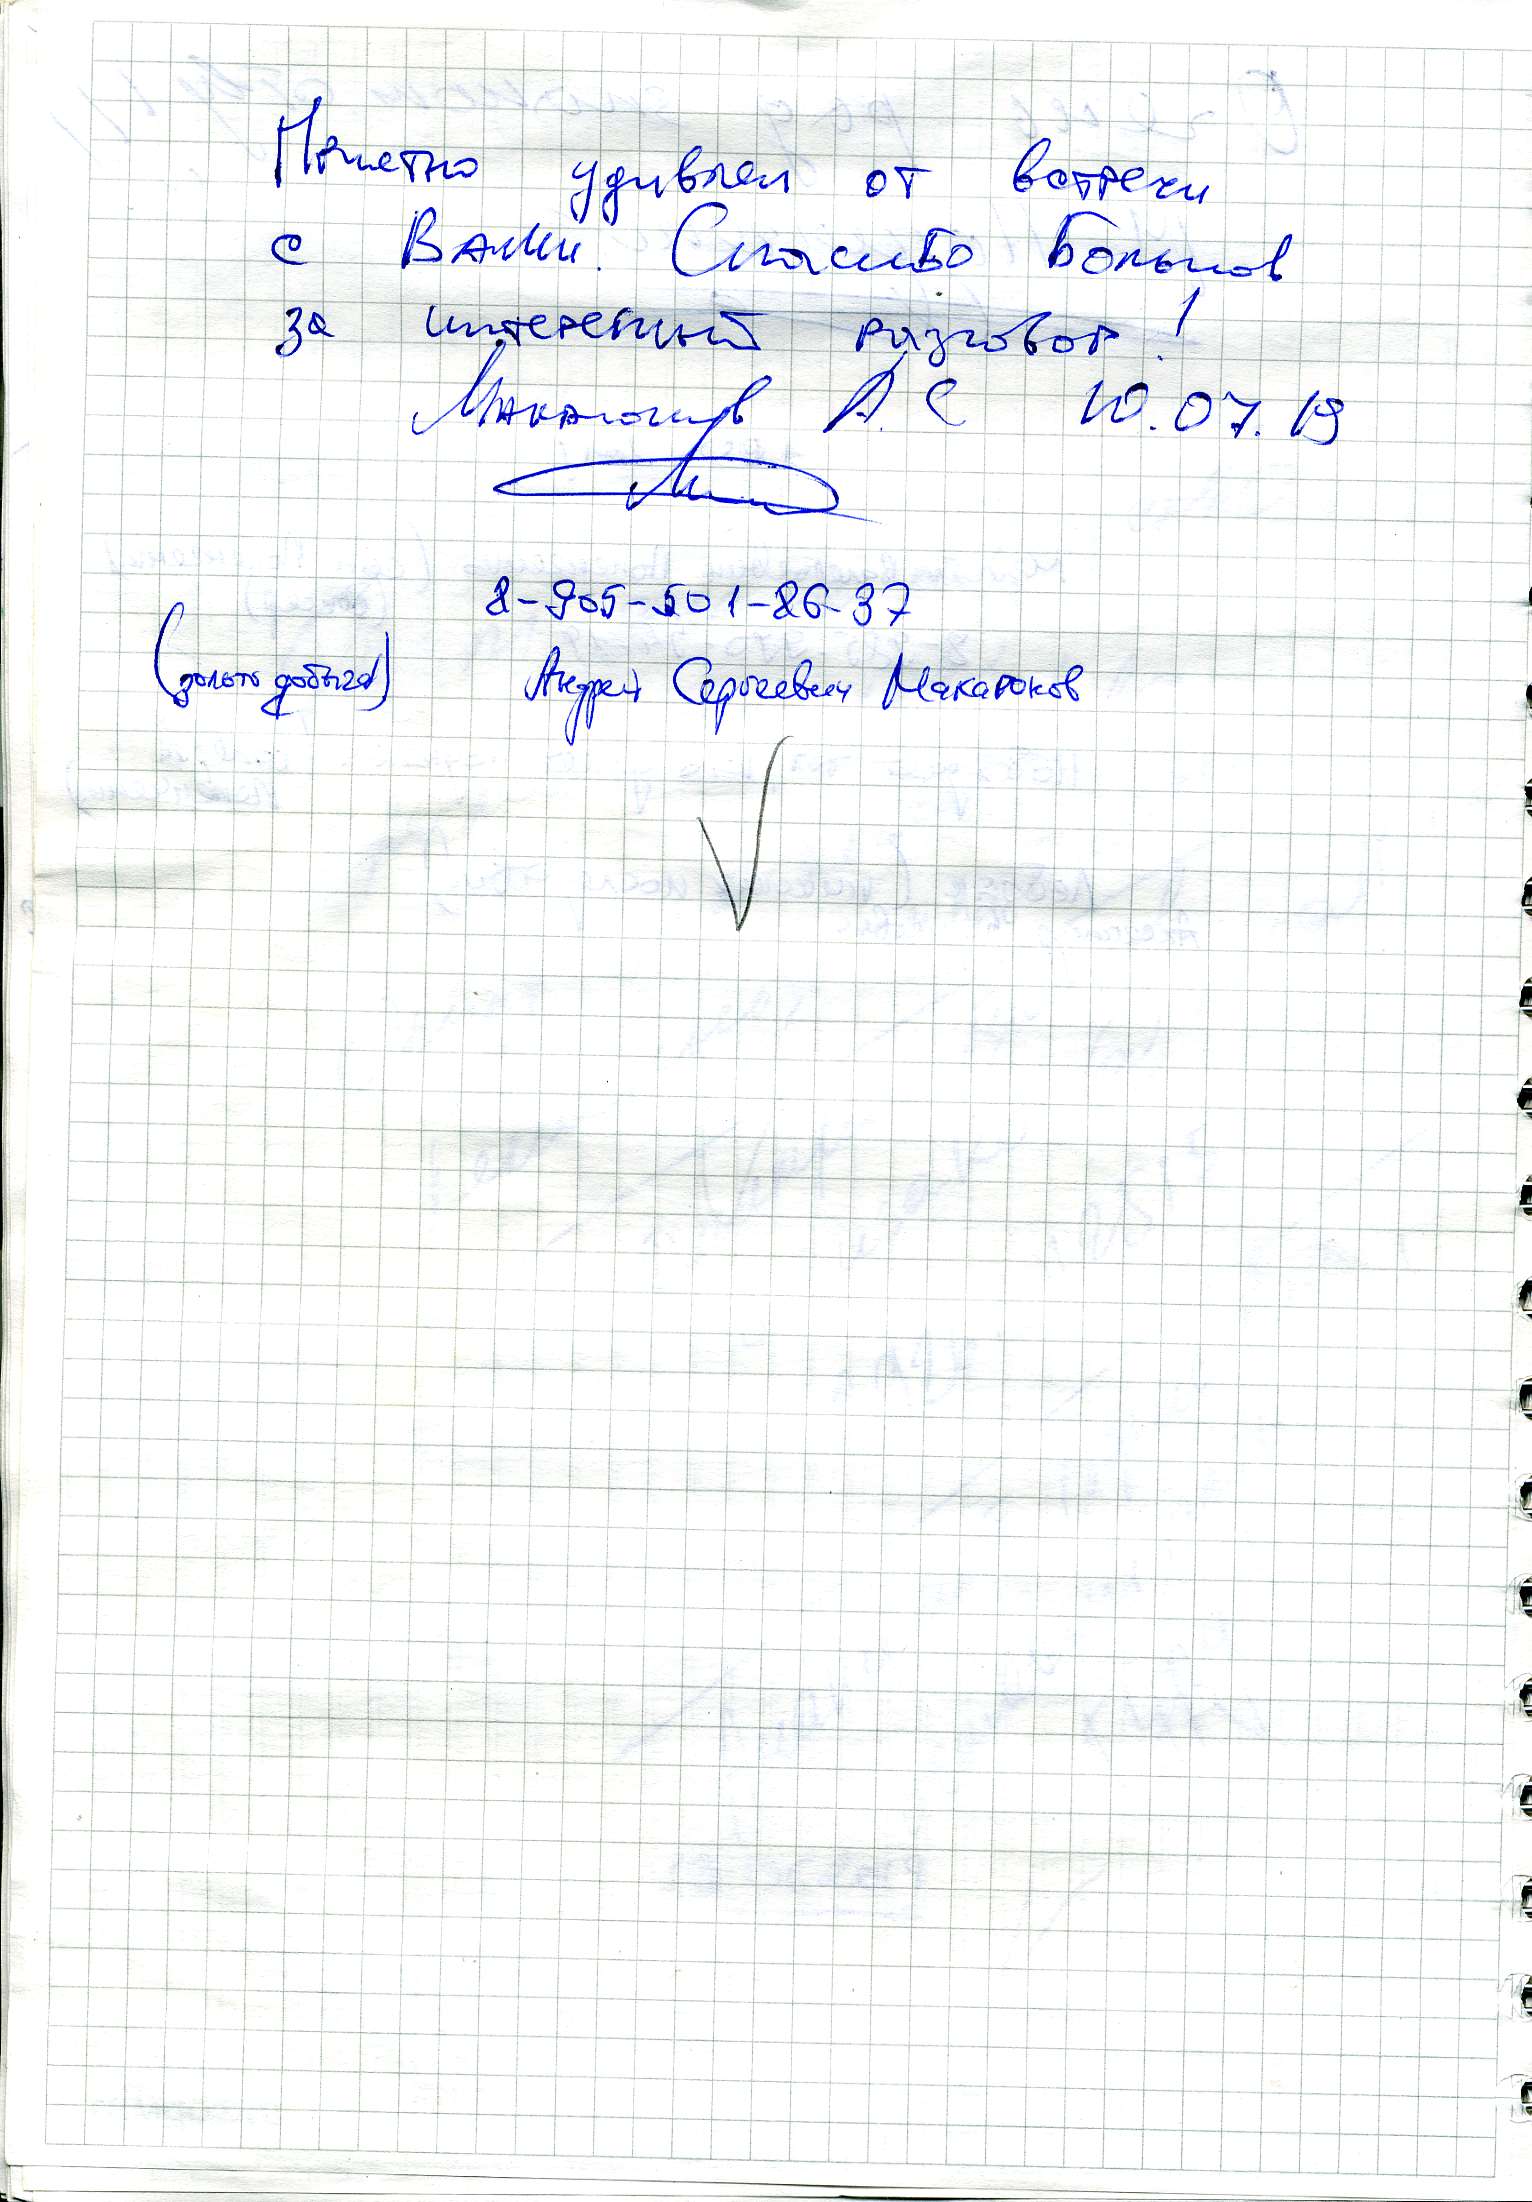 Приетно удивлен от встречи
с Вами. Спасибо Большов
за интересный разговор!
Макаронов А.С 10.07.19
8-905-501-86-37
(золото добыча) Андрей Сергеевич Макаронов